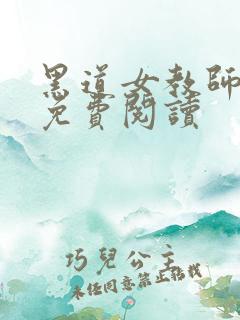 黑道女教師
免費閱讀
巧兒公主
未經同意禁止轉載